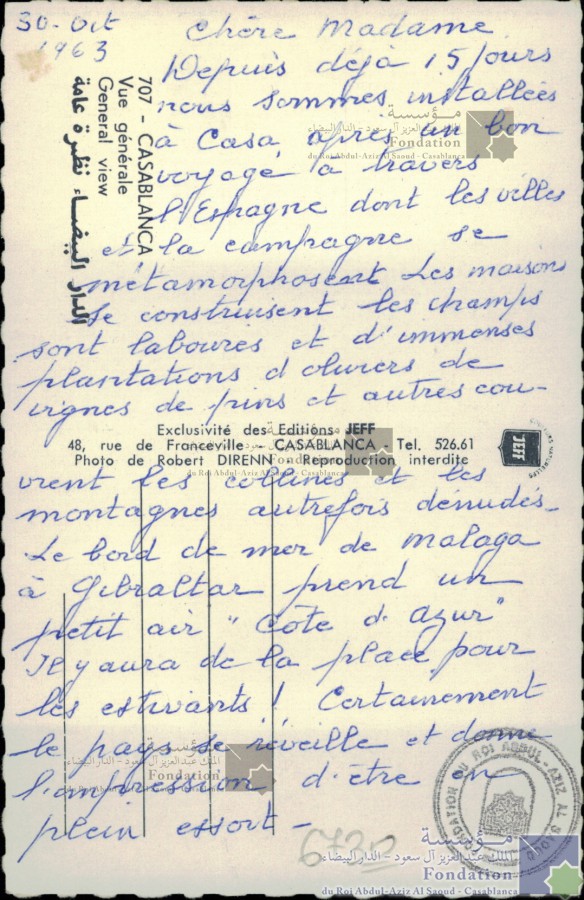 30-Oct
1963
Chère Madame
Depuis déjà 15 jours
nous sommes installées
à Casa après un bon
voyage à travers
l'Espagne dont les villes
et la campagne se
métamorphosent Les maisons
se construisent les champs
sont laboures et d'immenses
plantations d oliviers de
vignes de pins et autres cou-
707 - CASABLANCA
Vue générale
General view
الدار البيضاء نظرة عامة
Exclusivité des Editions JEFF
48, rue de Franceville - CASABLANCA - Tel. 526.61
Photo de Robert DIRENN - Reproduction interdite
JEFF
vrent les collines et les
montagnes autrefois dénudés.
Le bord de mer de Malaga
à Gibraltar prend un
petit air "Côte d'Azur"
Il y aura de la place pour
les estivants ! Certainement
le pays se réveille et donne
l'impression d'être en
plein essort -
673
FONDATION DU ROI ABDUL-AZIZ AL SAOUD
مؤسسة
الملك عبد العزيز آل سعود - الدار البيضاء
Fondation
du Roi Abdul-Aziz Al Saoud - Casablanca